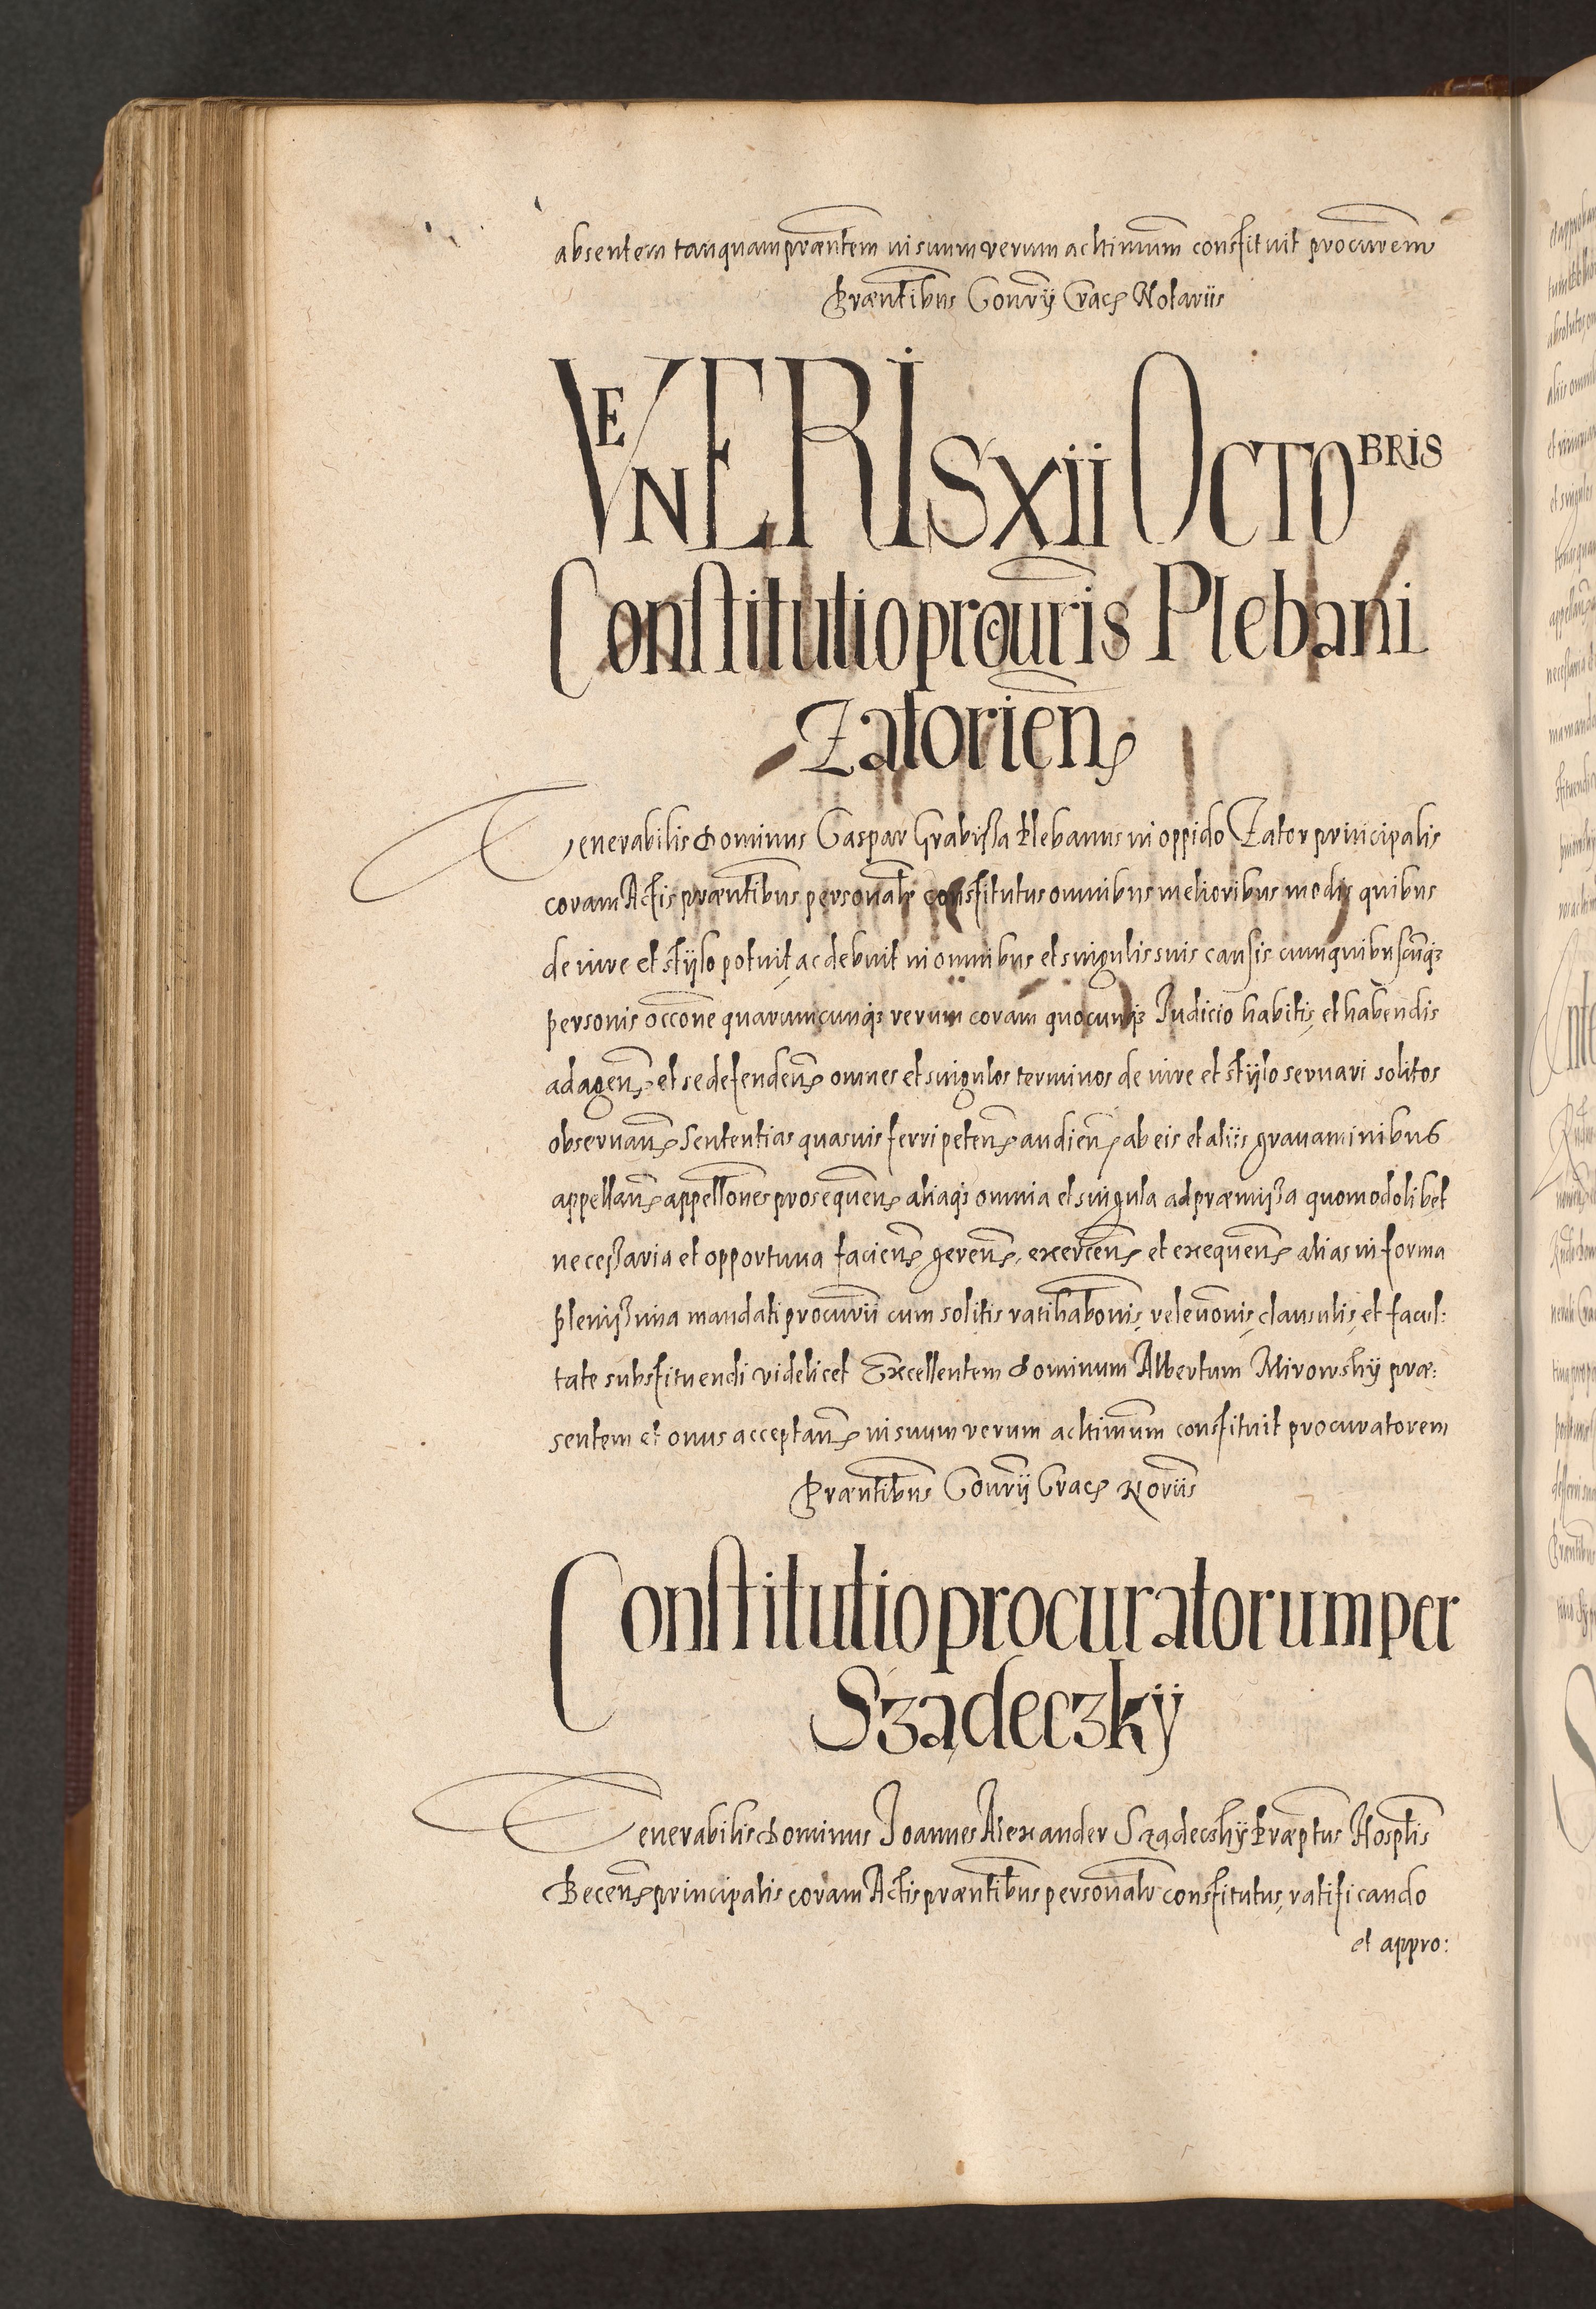 absentem tanquam præntem in suum verum ac ltimum constituit procurem
Præntibus Consrÿ Crac Notariis
VENERIS xii OCTOBRIS
Constitutio procuris Plebani
Zatorien
Venerabilis Dominus Gaspar Grabissa Plebanus in oppido Zator principalis
coram Actis præntibus personalr constitutus omnibus melioribus modis quibus
de iure et stÿlo potuit, ac debuit in omnibus et singulis suis causis cum quibuscunq3
personis occone quarumcunq3 rerum coram quocunq3 Iudicio habitis, et habendis
ad agen et se defenden omnes et singulos terminos de iure et stÿlo servari solitos
observan Sententias quasvis ferri peten audien ab eis et aliis gravaminibus
appellan appellones prosequen aliaq3 omnia et singula ad præmissa quomodolibet
necessaria et opportuna facien geren, exercen et exequen alias in forma
plenissima mandati procurii cum solitis ratihabonis, relevonis, clausulis, et facul:
tate substituendi videlicet Excellentem Dominum Albertum Mirowskÿ præ:
sentem et onus acceptan in suum verum ac ltimum constituit procuratorem
Præntibus Consrÿ Crac Noriis
Constitutio procuratorum per
Szadeczkÿ
Venerabilis Dominus Joannes Alexander Szadecskÿ Præptus Hosptis
Becen principalis coram Actis præntibus personalr constitutus, ratificando
et appro: